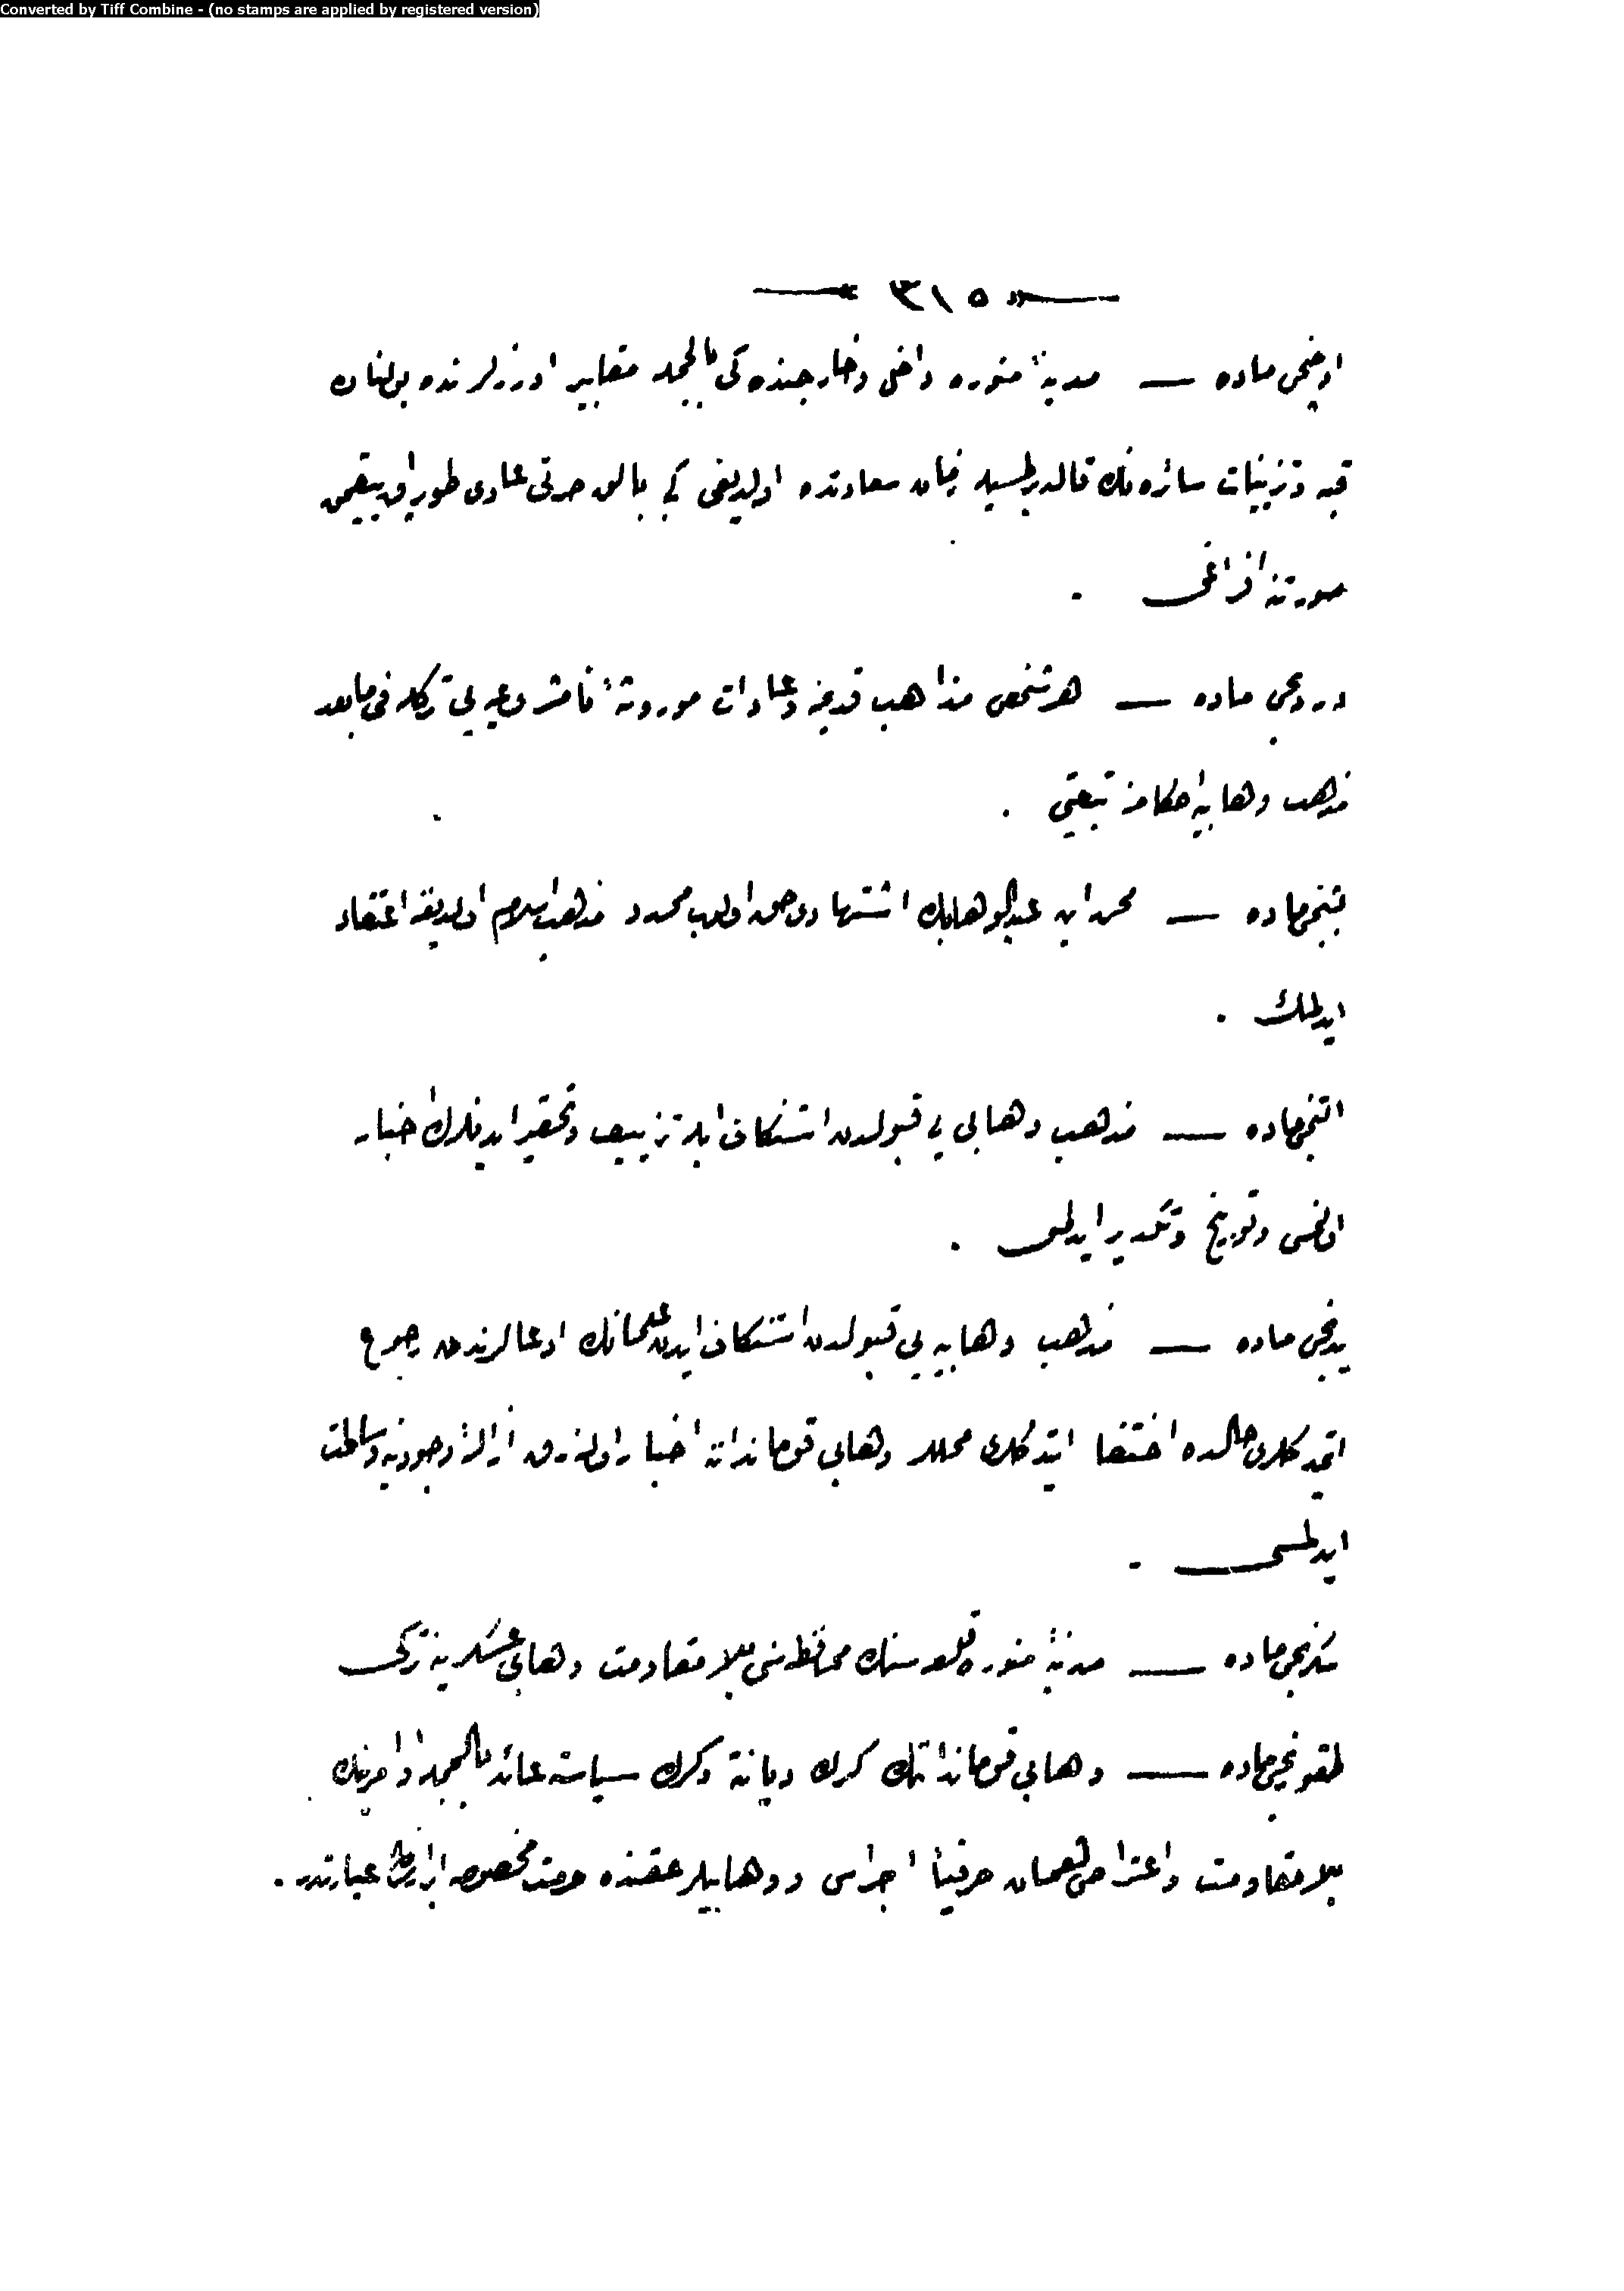 Converted by Tiff Combine - (no stamps are applied by registered version)
٣١٥
اوچنجی ماده — مدینهٔ منوره داخل وخارجنده کی بالجمله مقابر اوزرلرنده بولنان
قبه وتزیینات سائره نك قالدیرلمسیله زمان سعادتده اولدیغی کبی بالق صرتی عادی طوپراق ییغمق
صورتنه افراغی .
دردنجی ماده — هر شخص مذاهب قدیمه وعادات موروثهٔ نامشروعه یی ترکله فی مابعد
مذهب وهابیه احکامنه تبعیتی .
بشنجی ماده — محمد ابن عبدالوهابك اشتهادی حق اولوب مجدد مذهب اسلام اولدیغنه اعتقاد
ایدلمك .
التنجی ماده — مذهب وهابی یی قبولدن استنکاف ایله تزییف وتحقیر ایدنلرك اخبار
اولنمسی وتوبیخ وتکدیر ایدلمسی .
یدنجی ماده — مذهب وهابیه یی قبولدن استنکاف ایدن علمانك ادعالرندن رجوع
ایتمدکلری حالده اختفا ایتدکلری محللر وهابی قوماندانه اخبار اولنه رق ازالهٔ وجودینه وساطت
ایدلمسی .
سکزنجی ماده — مدینهٔ منوره قلعه سنك محافظه سنی بلا مقاومت وهابی عسکرینه ترکی
طقوزنجی ماده — وهابی قوماندانك کرك دیانة وکرك سیاسته عائد بالجمله اوامرینك
بلا مقاومت واعتراض حرفیاً اجراسی ووهابیلر حقنده حرمت مخصوصه ابرازی عبارتدر .